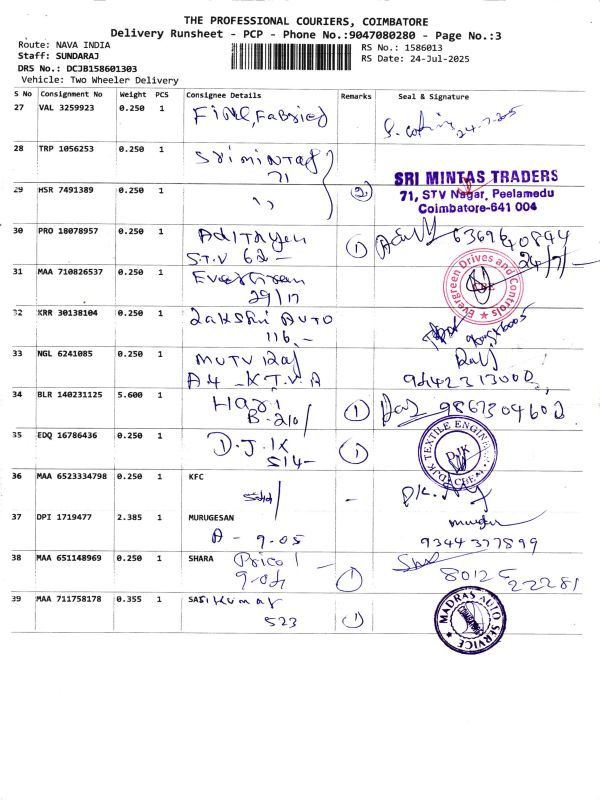 THE PROFESSIONAL COURIERS, COIMBATORE
Delivery Runsheet - PCP - Phone No.:9047080280 - Page No.:3
Route: NAVA INDIA
Staff: SUNDARAJ
DRS No.: DCJB158601303
Vehicle: Two Wheeler Delivery
RS No.: 1586013
RS Date: 24-Jul-2025
S No Consignment No Weight PCS Consignee Details Remarks Seal & Signature
27 VAL 3259923 0.250 1
28 TRP 1056253 0.250 1 Sri Mintas
71
29 HSR 7491389 0.250 1 ,, 2
SRI MINTAS TRADERS
71, STV Nagar, Peelamedu
Coimbatore-641 004
30 PRO 18078957 0.250 1 Adithyen 1
S.T.V 62 -
31 MAA 710826537 0.250 1 Evergreen
29/17
Evergreen Drives and Controls
32 KRR 30138104 0.250 1 Lakshri Auto
116,-
33 NGL 6241085 0.250 1
A4 - K.T.V.A
34 BLR 140231125 5.600 1 Hari 1
B-210/
35 EDQ 16786436 0.250 1 D.J.IX 1
514-
DJK
36 MAA 6523334798 0.250 1 KFC -
37 DPI 1719477 2.385 1 MURUGESAN
A - 9-05
9344377899
38 MAA 651148969 0.250 1 SHARA Prico 1
8012522281
39 MAA 711758178 0.355 1 SASI Kumar 1
523
MADRAS AUTO SERVICE